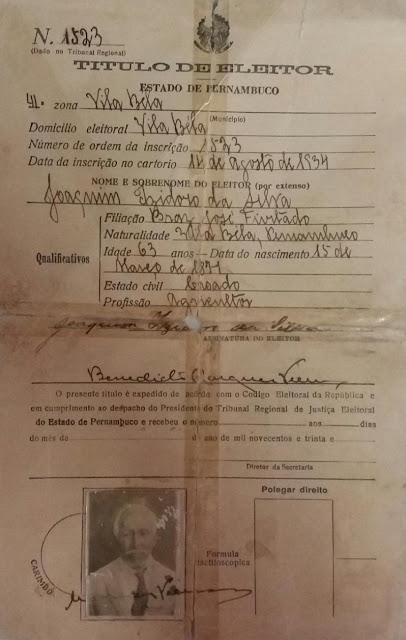 N. 1523
(Dado no Tribunal Regional)
TITULO DE ELEITOR
ESTADO DE PERNAMBUCO
41. zona Vila Bela
(Municipio)
Domicilio eleitoral Vila Bela
Número de ordem da inscrição 1523
Data da inscrição no cartorio 14 de agosto de 1934
NOME E SOBRENOME DO ELEITOR (por extenso)
Joaquim Izidoro da Silva
Filiação Braz José Furtado
Naturalidade Vila Bela, Pernambuco
Qualificativos
Idade 63 anos—Data do nascimento 15 de
Março de 1871
Estado civil Casado
Profissão Agricultor
Joaquim da Silva
ASSINATURA DO ELEITOR
Benedicto
O presente titulo é expedido de acordo com o Codigo Eleitoral da República e
em cumprimento ao despacho do Presidente do Tribunal Regional de Justiça Eleitoral
do Estado de Pernambuco e recebeu o número aos dias
do mês de do ano de mil novecentos e trinta e
Diretor da Secretaria
Polegar direito
CARIMBO
Formula